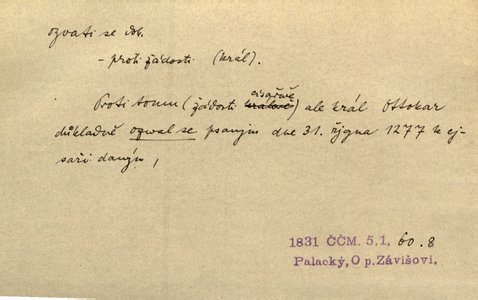 ozvati se dok.
- proti žádosti (král).
Proti tomu (žádosti králově císařově) ale král Ottokar
důkladně ozwal se psaným dne 31. října 1277 k cj-
saři daným,
1831 ČČM. 5,1, 60.8
Palacký, O p. Závišovi.